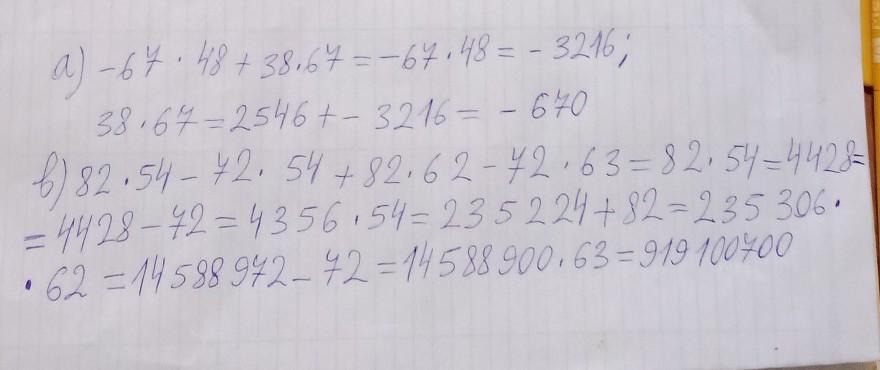 а) -67 · 48 + 38 · 67 = -67 · 48 = - 3216;
38 · 67 = 2546 + - 3216 = - 670
в) 82 · 54 - 72 · 54 + 82 · 62 - 72 · 63 = 82 · 54 = 4428 =
= 4428 - 72 = 4356 · 54 = 235 224 + 82 = 235 306 ·
· 62 = 14 588 972 - 72 = 14 588 900 · 63 = 919 100 700